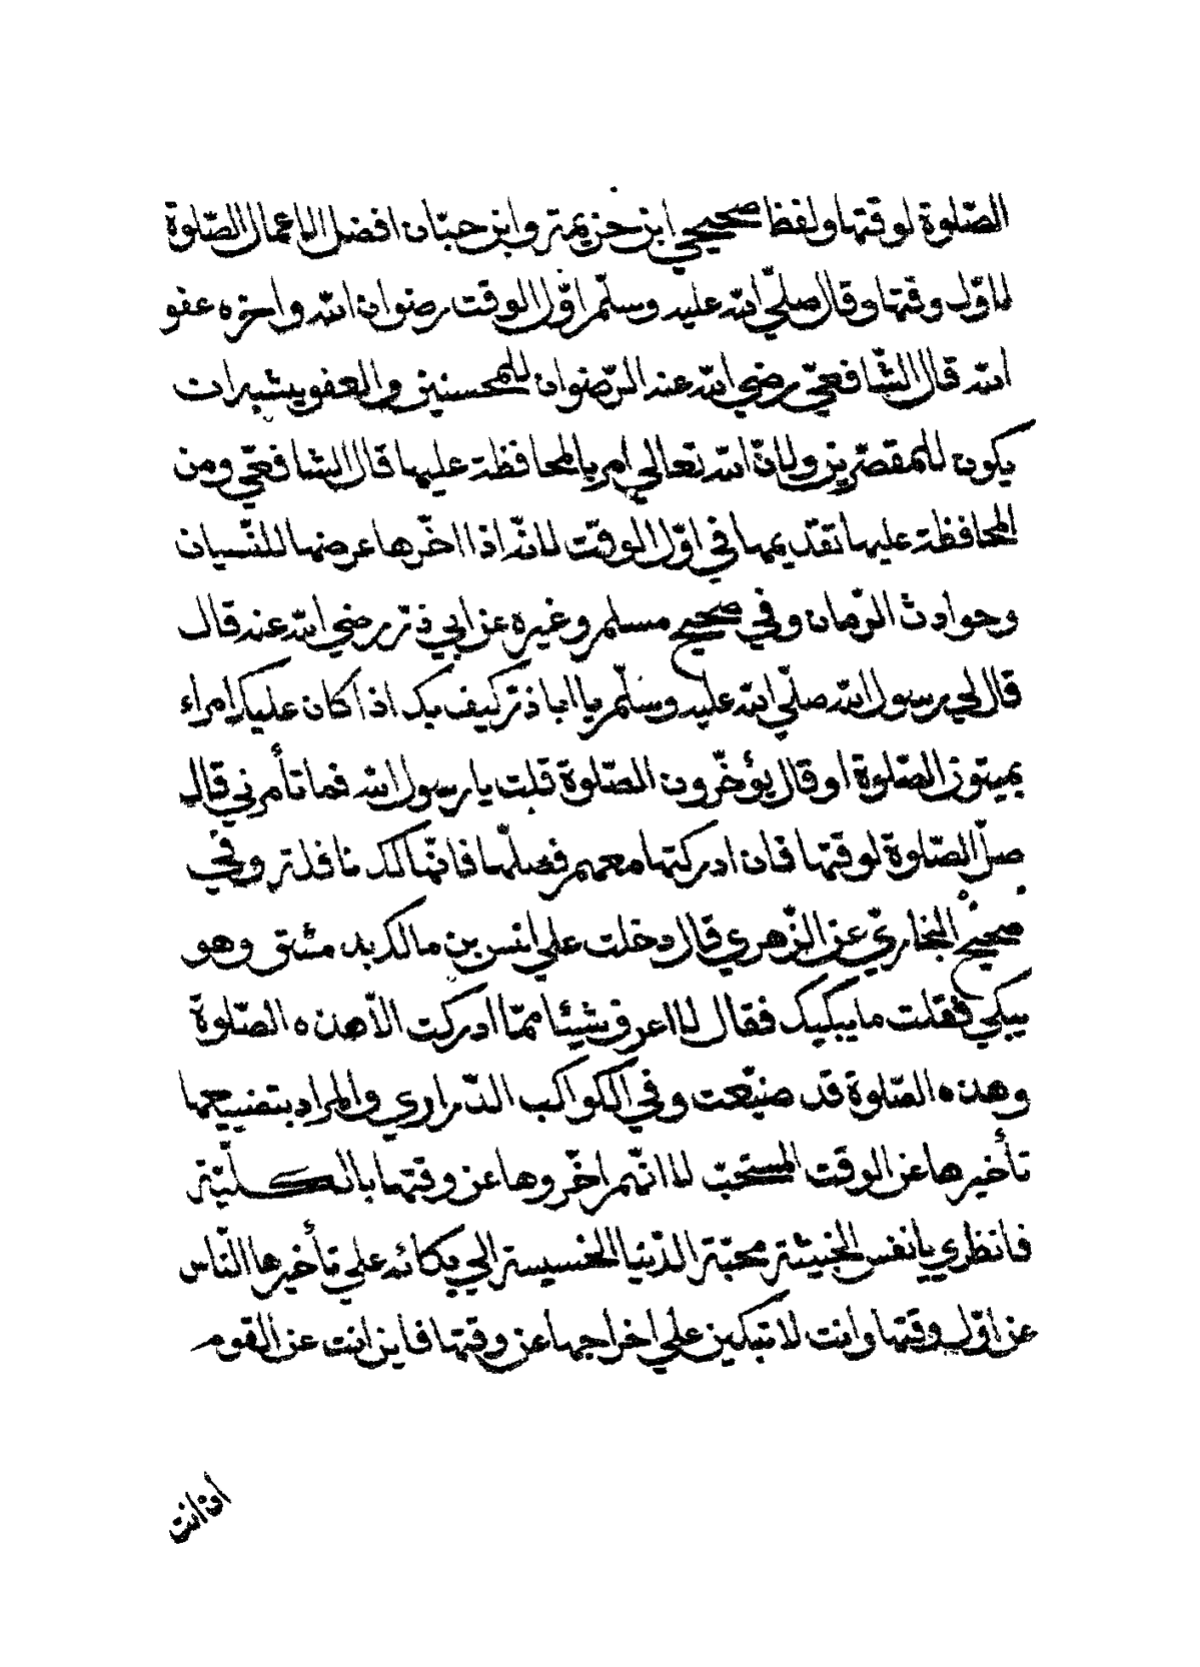 الصّلوة لوقتها ولفظ صحيحي ابن خزيمة وابن حبّان افضل الاعمال الصّلوة
لاوّل وقتها وقال صلّي الله عليه وسلّم اوّل الوقت رضوان الله واخره عفو
الله قال الشّافعيّ رضي الله عنه الرّضوان للمحسنين والعفو يشبه ان
يكون للمقصّرين ولانّ الله تعالي امر بالمحافظة عليها قال الشافعيّ ومن
المحافظة عليها تقديمها في اوّل الوقت لانّه اذا اخّرها عرضها للنّسيان
وحوادث الزّمان وفي صحيح مسلم وغيره عن ابي ذرّ رضي الله عنه قال
قال لي رسول الله صلّي الله عليه وسلّم يا ابا ذرّ كيف بك اذا كان عليك امراء
يميتون الصّلوة او قال يؤخّرون الصّلوة قلت يا رسول الله فما تأمرني قال
صلّ الصّلوة لوقتها فان ادركتها معهم فصلّها فانّها لك نافلة وفي
صحيح البخاريّ عن الزّهري قال دخلت علي انس بن مالك بدمشق وهو
يبكي فقلت ما يبكيك فقال لا اعرف شيئا ممّا ادركت الّا هذه الصّلوة
وهذه الصّلوة قد ضيّعت وفي الكواكب الدّراري والمراد بتضييعها
تأخيرها عن الوقت المستحبّ لا انّهم اخّروها عن وقتها بالكلّيّة
فانظري يا نفس الخبيثة محبّة الدّنيا الخسيسة الي بكائه علي تأخيرها النّاس
عن اوّل وقتها وانت لا تبكين علي اخراجها عن وقتها فاين انت عن القوم
ان انت